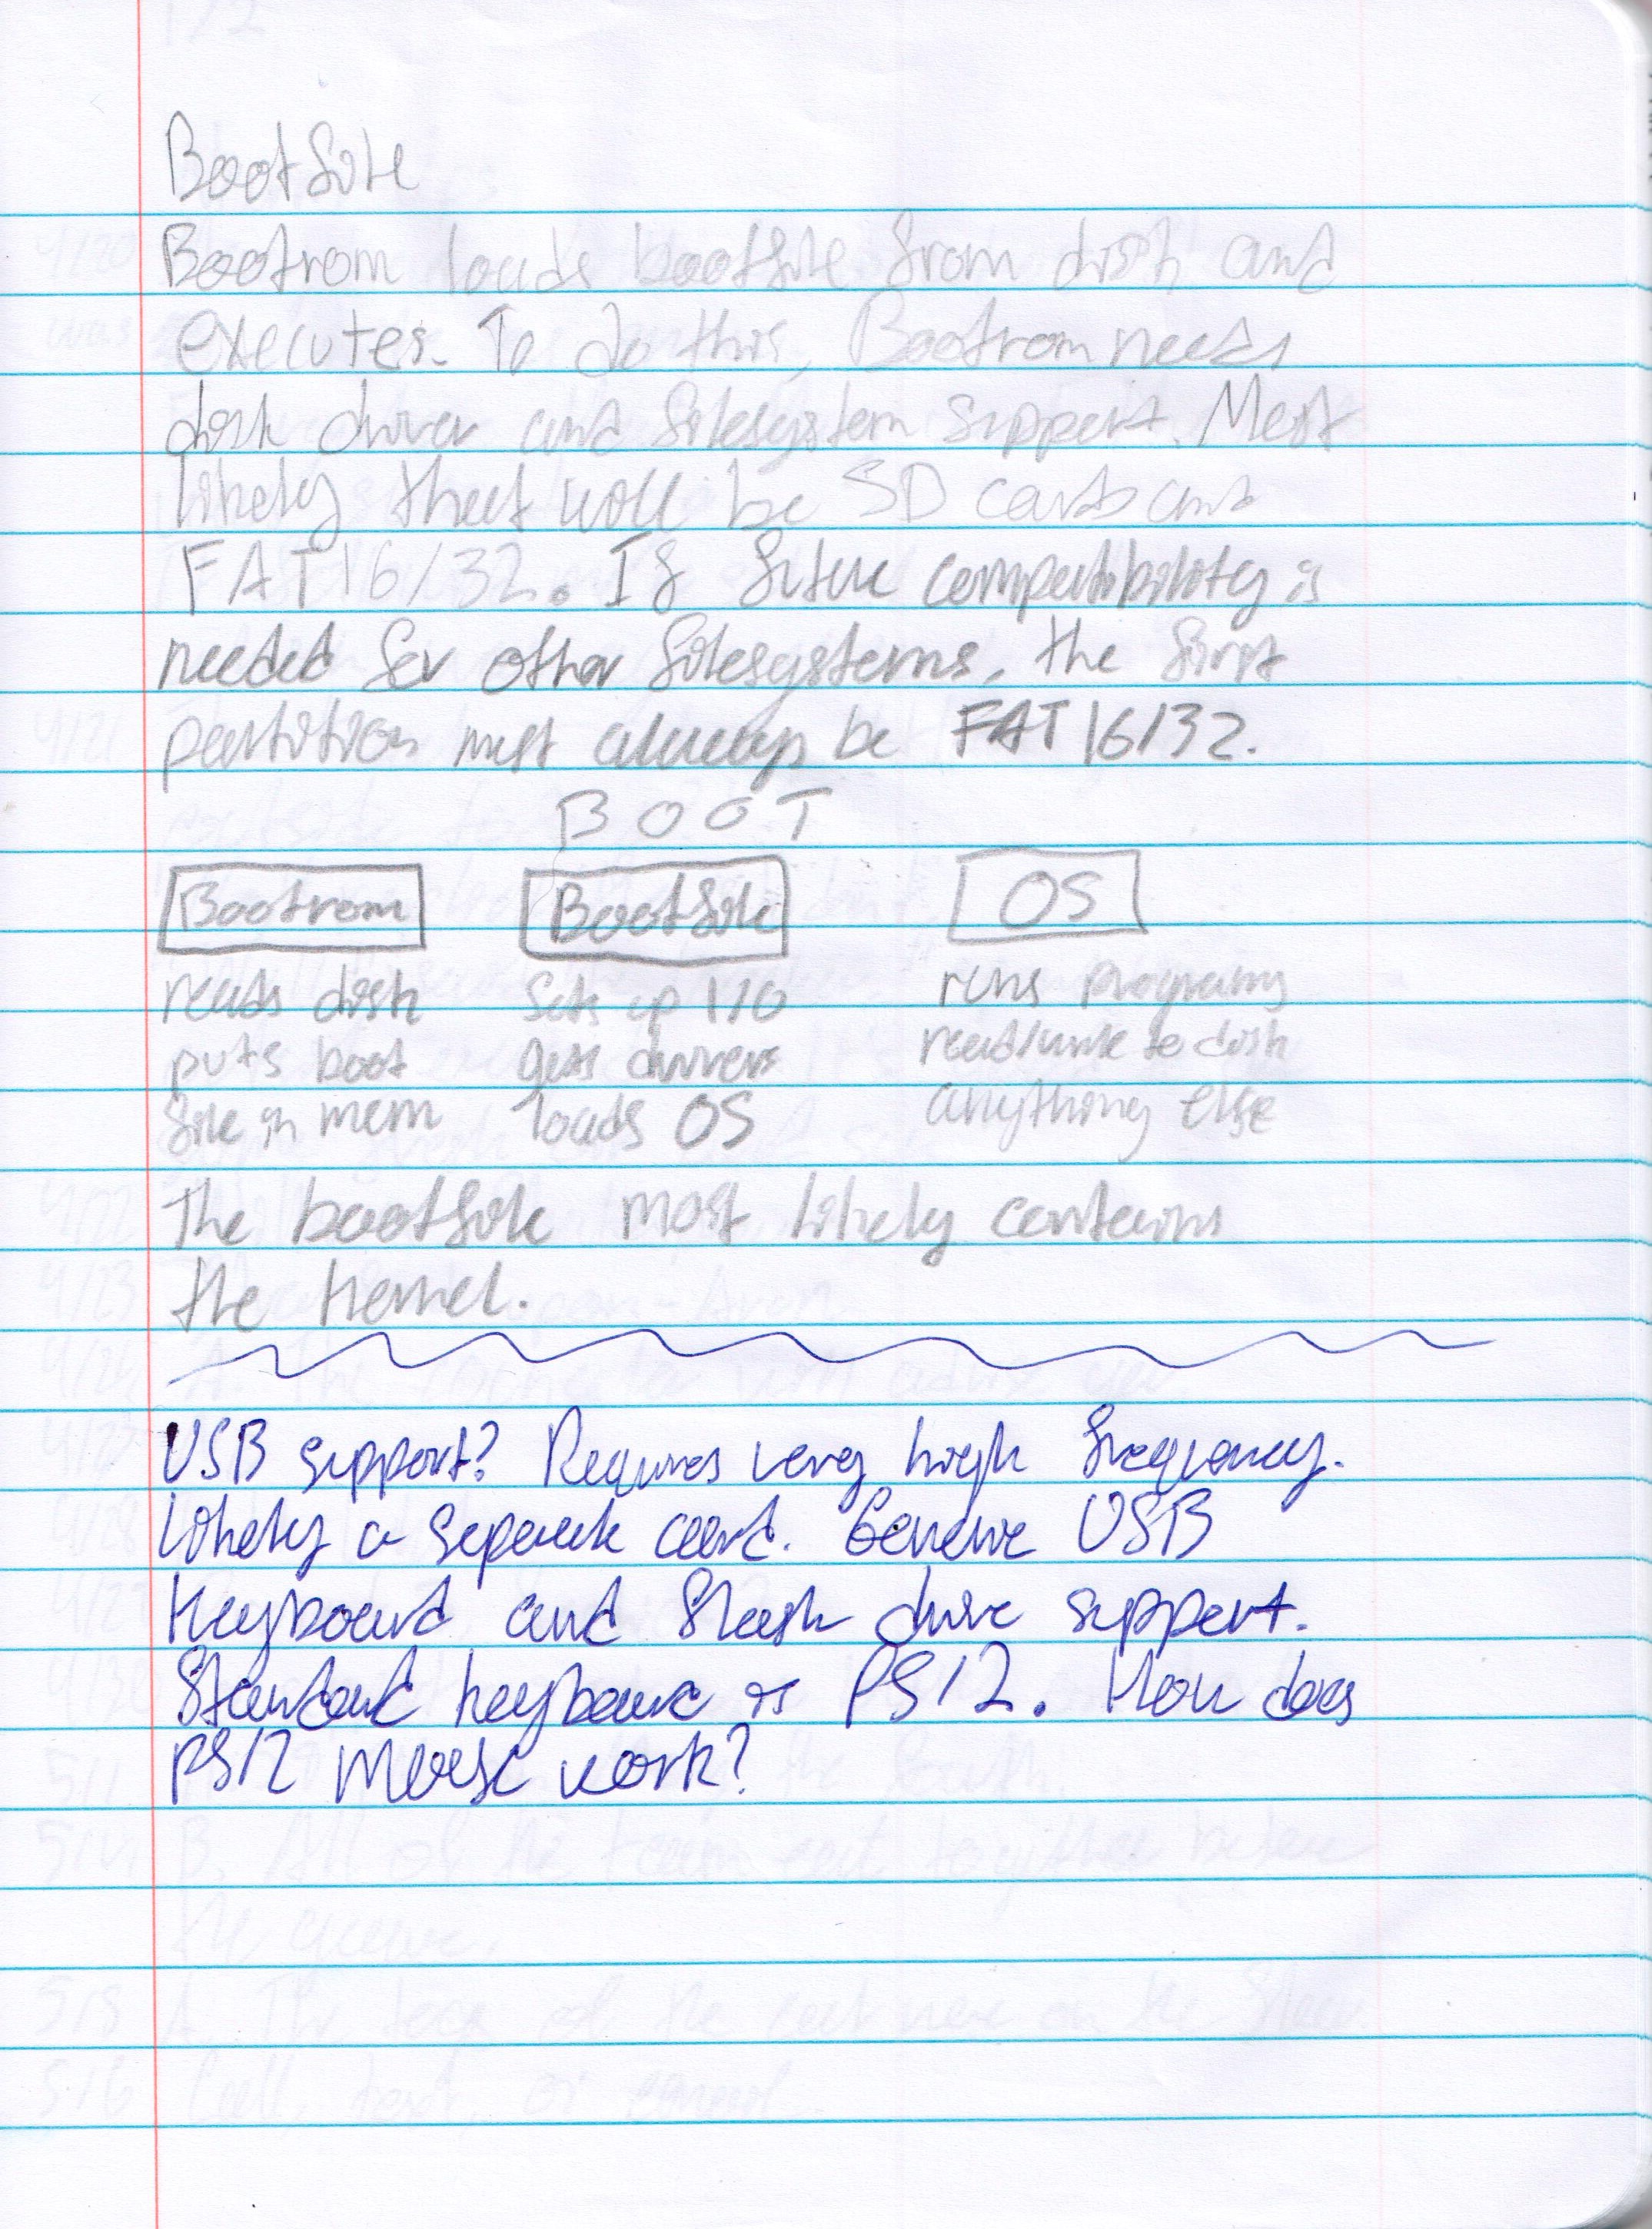 Bootfile
Bootrom loads bootfile from disk and
executes. To do this, Bootrom needs
disk driver and filesystem support. Most
likely that will be SD cards and
FAT16/32. If future compatibility is
needed for other filesystems, the first
partition must always be FAT16/32.
BOOT
Bootrom Bootfile OS
reads disk sets up I/O runs programs
puts boot gets drivers read/write to disk
file in mem loads OS anything else
The bootfile most likely contains
the kernel.
USB support? Requires very high frequency.
Likely a separate card. Generic USB
Keyboard and flash drive support.
Standard keyboard is PS/2. How does
PS/2 mouse work?